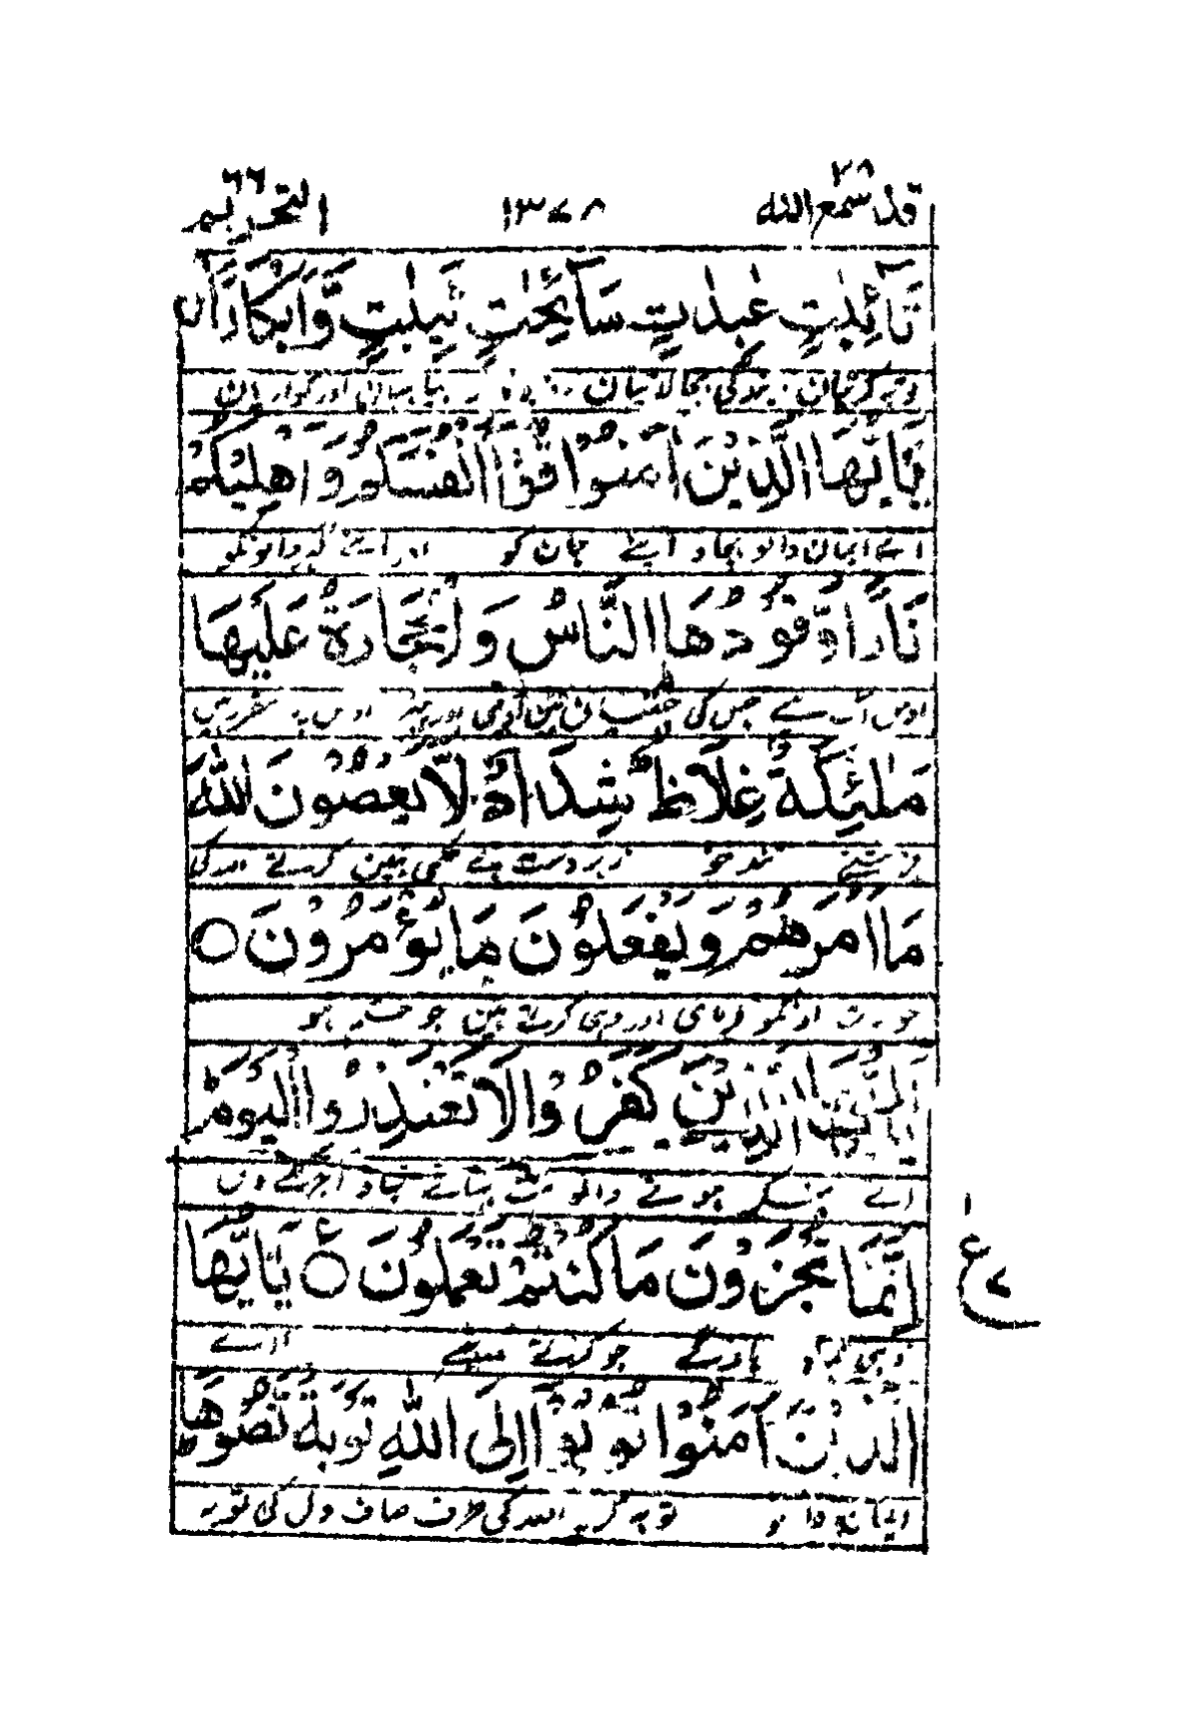 قد سمع الله ٢٨ ١٣٧٨ التحريم ٦٦
تٰٓئِبٰتٍ عٰبِدٰتٍ سٰٓئِحٰتٍ ثَيِّبٰتٍ وَّاَبْكَارًا ۝
بندگی بجا لاتیاں اور کواریاں
يٰٓاَيُّهَا الَّذِيْنَ اٰمَنُوْا قُوْٓا اَنْفُسَكُمْ وَاَهْلِيْكُمْ
اے ایمان والو بچاؤ اپنے جان کو اور اپنے گھر والونکو
نَارًا وَّقُوْدُهَا النَّاسُ وَالْحِجَارَةُ عَلَيْهَا
اوس آگ سے جس کی چھپٹیان ہین آدمی اور پتھر اوس پہ مقرر ہین
مَلٰٓئِكَةٌ غِلَاظٌ شِدَادٌ لَّا يَعْصُوْنَ اللّٰهَ
فرشتے تند خو زبردست بے حکمی نہین کرتے اللہ کی
مَآ اَمَرَهُمْ وَيَفْعَلُوْنَ مَا يُؤْمَرُوْنَ ۝
جو بات اونکو فرمائی اور وہی کرتے ہین جو حکم ہو
يٰٓاَيُّهَا الَّذِيْنَ كَفَرُوْا لَا تَعْتَذِرُوا الْيَوْمَ
اے منکر ہونے والو مت بہانے بتاؤ آج کے دن
اِنَّمَا تُجْزَوْنَ مَا كُنْتُمْ تَعْمَلُوْنَ ۝ يٰٓاَيُّهَا
وہی پاؤگے جو کرتے تھے اے
الَّذِيْنَ اٰمَنُوْا تُوْبُوْٓا اِلَى اللّٰهِ تَوْبَةً نَّصُوْحًا
ایمان والو توبہ کرو اللہ کی طرف صاف دل کی توبہ
١
ع
٧